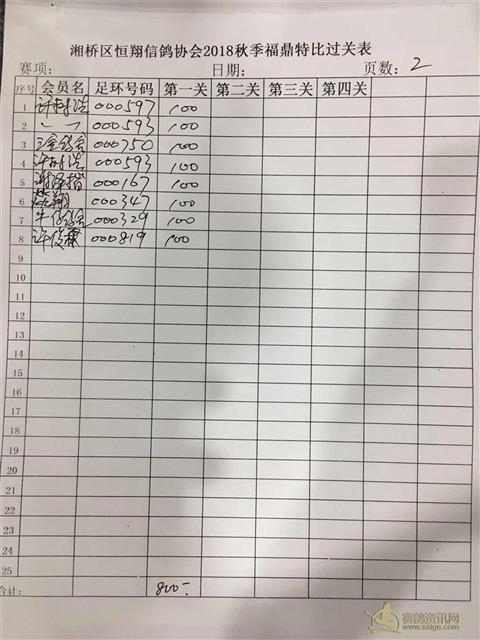 湘桥区恒翔信鸽协会2018秋季福鼎特比过关表
赛项: 日期: 页数: 2
序号 会员名 足环号码 第一关 第二关 第三关 第四关
1 000597 100
2 000593 100
3 000750 100
4 000593 100
5 000167 100
6 000347 100
7 000329 100
8 许俊 000819 100
9
10
11
12
13
14
15
16
17
18
19
20
21
22
23
24
25
合计: 800
赛鸽资讯网
www.saige.com